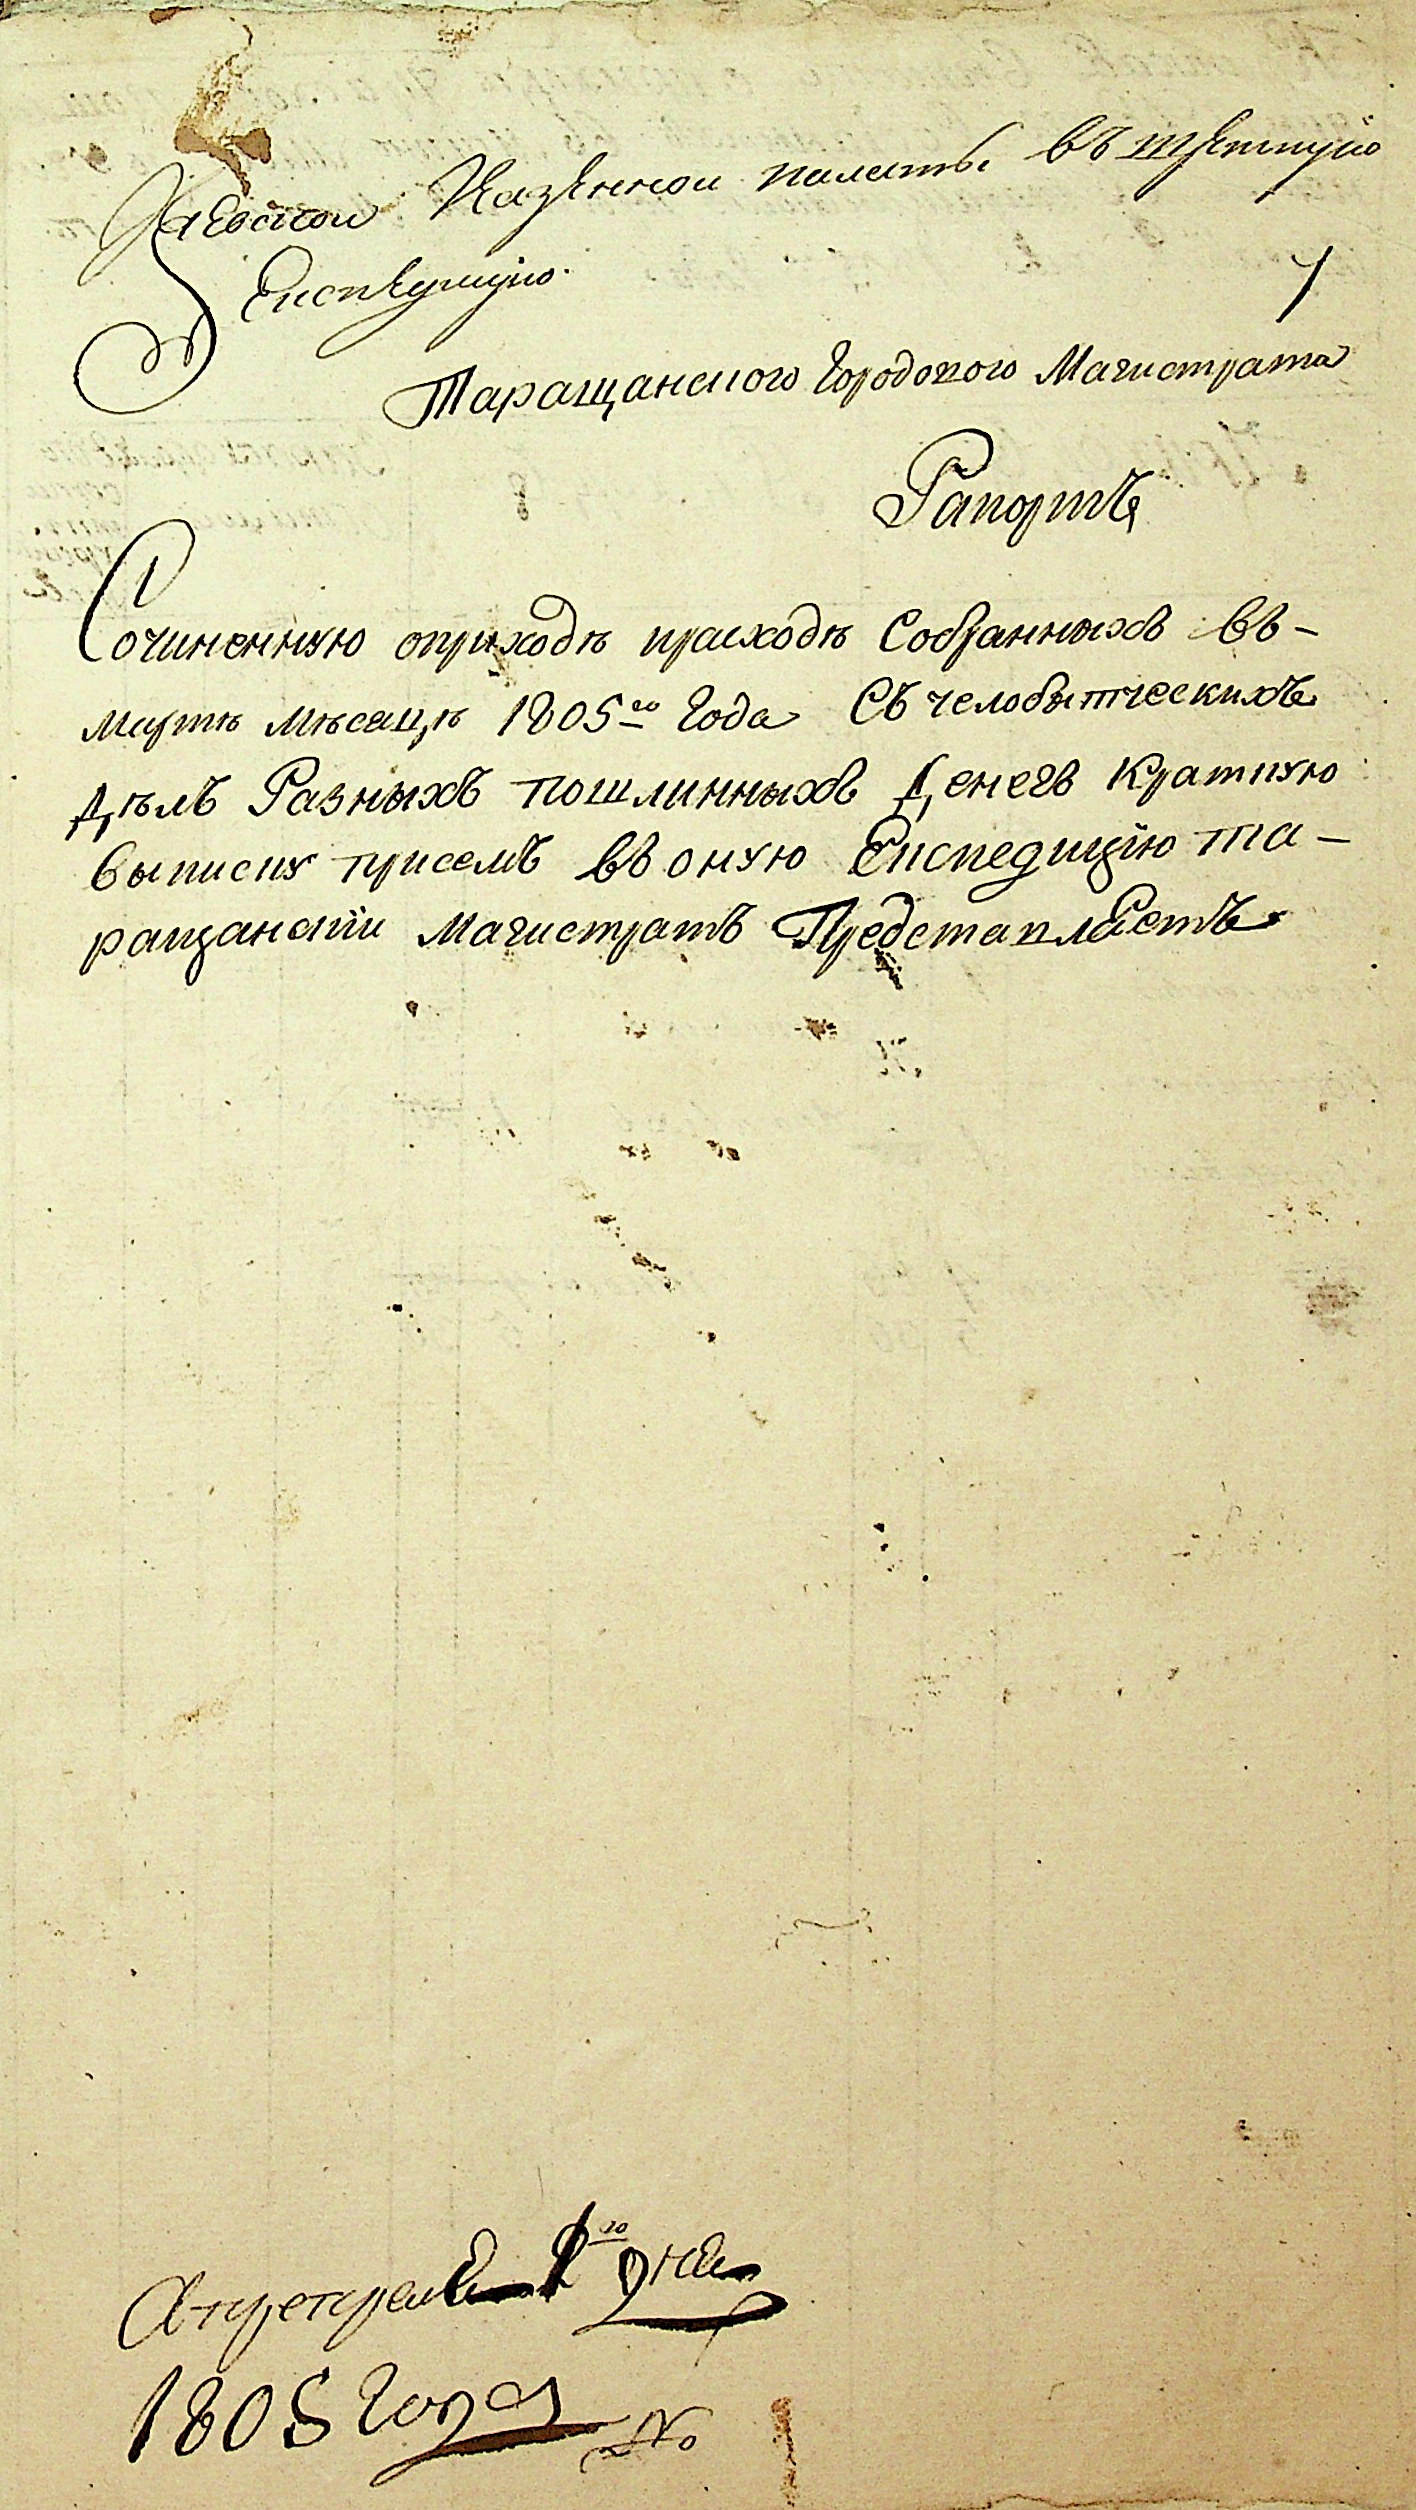 Киевской Казенной палаты въ третную
Експедицию.
Таращанского Городового Магистрата
Рапортъ
Сочиненную оприходѣ ирасходѣ Собранныхъ въ-
мартѣ мѣсяцѣ 1805го Года Съ челобытческихъ
дѣлъ Разныхъ пошлинныхъ Денегъ Краткую
выписку присемъ въ оную Експедицію та-
ращанскїи Магистратъ Представляетъ
дня
1805 Года №